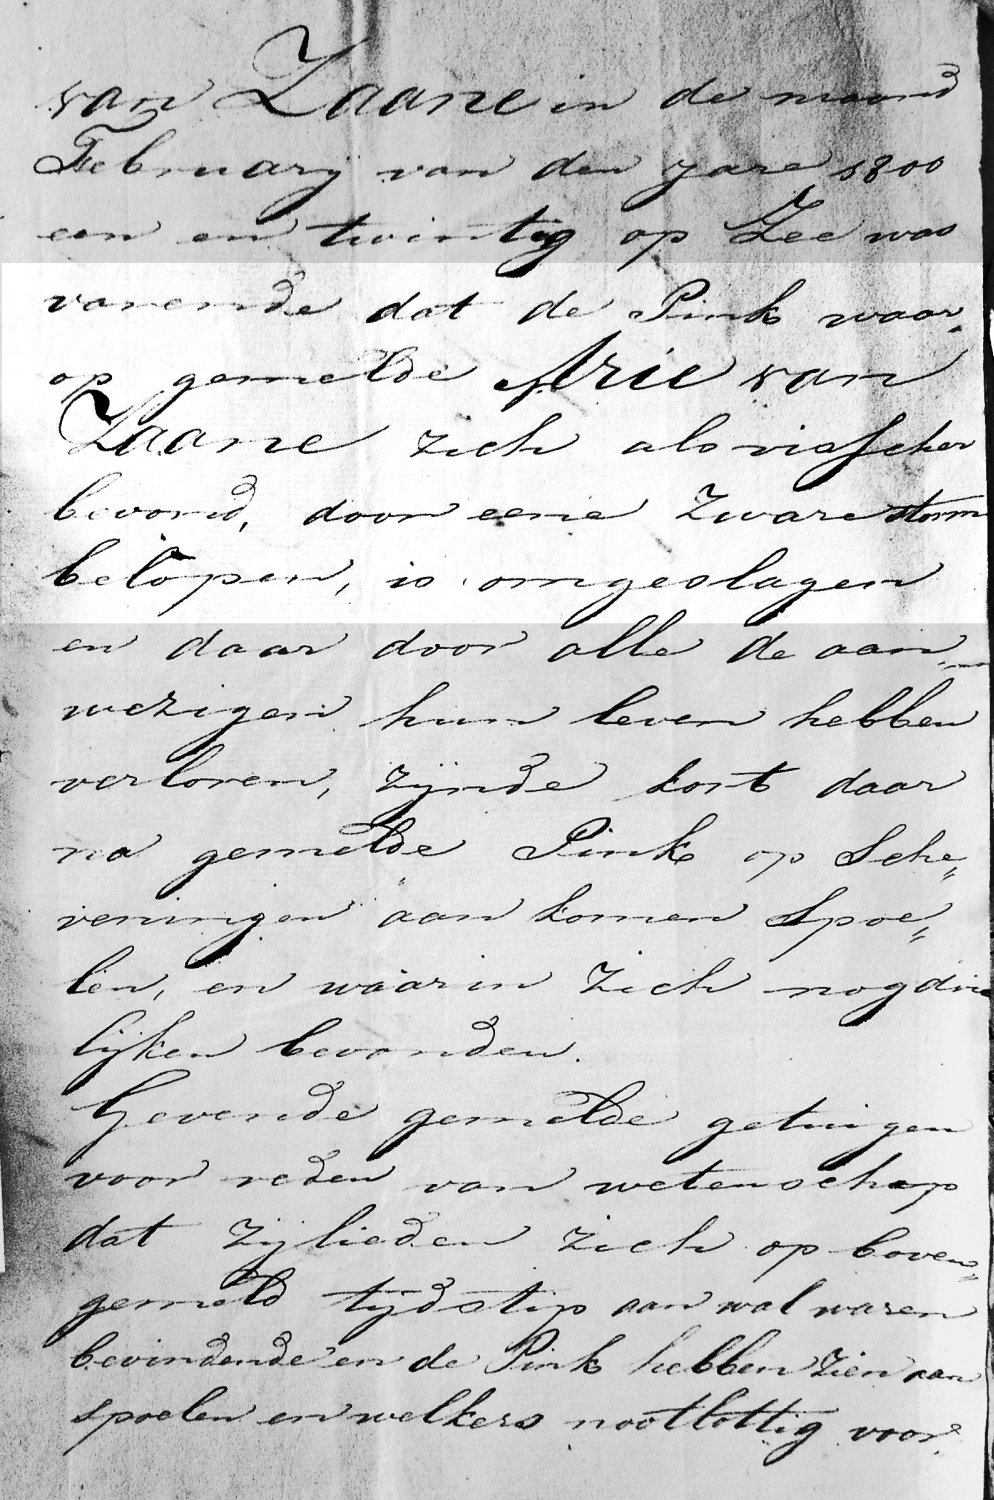 van Zaane in de maand
February van den Jare 1800
een en twintig op Zee was
varende dat de Pink waar-
op gemelde Arie van
Zaane zich als visscher
bevond, door eene zware storm
belopen, is omgeslagen
en daar door alle de aan-
wezigen hun leven hebben
verloren, zijnde kort daar
na gemelde Pink op Sche„
veningen aan komen spoe„
len, en waarin zich nog drie
lijken bevonden.
Gevende gemelde getuigen
voor reden van wetenschap
dat zij lieden zich op boven„
gemeld tijdstip aan wal waren
bevindende en de Pink hebben zien aan
spoelen en welkers nootlottig voor